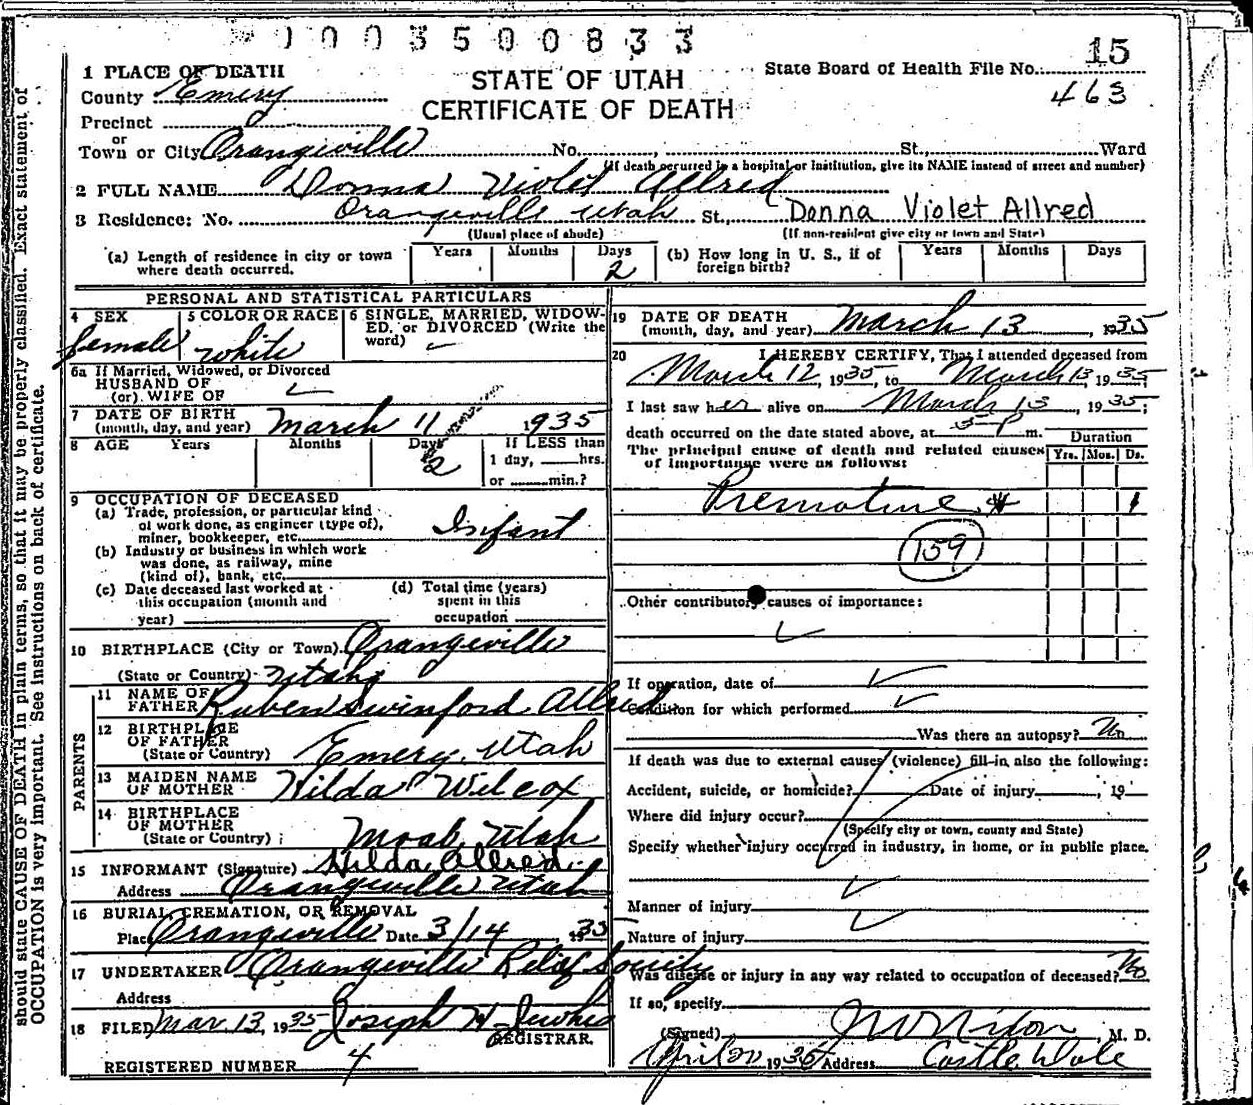 1003500833
15
1 PLACE OF DEATH
STATE OF UTAH
State Board of Health File No.
County Emery
CERTIFICATE OF DEATH
463
Precinct
or
Town or City Orangeville No. , St., Ward
(If death occurred in a hospital or institution, give its NAME instead of street and number)
2 FULL NAME Donna Violet Allred
3 Residence: No. Orangeville Utah St., Donna Violet Allred
(Usual place of abode) (If non-resident give city or town and State)
(a) Length of residence in city or town where death occurred. Years Months Days 2
(b) How long in U. S., if of foreign birth? Years Months Days
PERSONAL AND STATISTICAL PARTICULARS
4 SEX female
5 COLOR OR RACE white
6 SINGLE, MARRIED, WIDOW-
ED, or DIVORCED (Write the
word)
6a If Married, Widowed, or Divorced
HUSBAND OF
(or) WIFE OF
7 DATE OF BIRTH
(month, day, and year) March 11 1935
8 AGE Years Months Days 2 If LESS than
1 day, hrs.
or min.?
9 OCCUPATION OF DECEASED
(a) Trade, profession, or particular kind
of work done, as engineer (type of),
miner, bookkeeper, etc. Infant
(b) Industry or business in which work
was done, as railway, mine
(kind of), bank, etc.
(c) Date deceased last worked at
this occupation (month and
year)
(d) Total time (years)
spent in this
occupation
10 BIRTHPLACE (City or Town) Orangeville
(State or Country) Utah
PARENTS
11 NAME OF
FATHER Ruben Swinford Allred
12 BIRTHPLACE
OF FATHER
(State or Country) Emery, Utah
13 MAIDEN NAME
OF MOTHER Hilda Wilcox
14 BIRTHPLACE
OF MOTHER
(State or Country) Moab, Utah
15 INFORMANT (Signature) Hilda Allred
Address Orangeville Utah
16 BURIAL, CREMATION, OR REMOVAL
Place Orangeville Date 3/14, 1935
17 UNDERTAKER Orangeville Relief Society
Address
18 FILED Mar 13, 1935 Joseph H
REGISTRAR.
REGISTERED NUMBER 4
19 DATE OF DEATH
(month, day, and year) March 13, 1935
20 I HEREBY CERTIFY, That I attended deceased from
March 12, 1935, to March 13, 1935;
I last saw her alive on March 13, 1935;
death occurred on the date stated above, at 5 P m.
The principal cause of death and related causes
of importance were as follows:
Duration
Yrs. Mos. Ds.
Premature 1
159
Other contributory causes of importance:
If operation, date of
Condition for which performed
Was there an autopsy? No
If death was due to external causes (violence) fill-in also the following:
Accident, suicide, or homicide? Date of injury , 19
Where did injury occur?
(Specify city or town, county and State)
Specify whether injury occurred in industry, in home, or in public place.
Manner of injury
Nature of injury
Was disease or injury in any way related to occupation of deceased? No
If so, specify
(Signed) Nixon, M. D.
April 30 1935 Address Castle Dale
should state CAUSE OF DEATH in plain terms, so that it may be properly classified. Exact statement of
OCCUPATION is very important. See instructions on back of certificate.